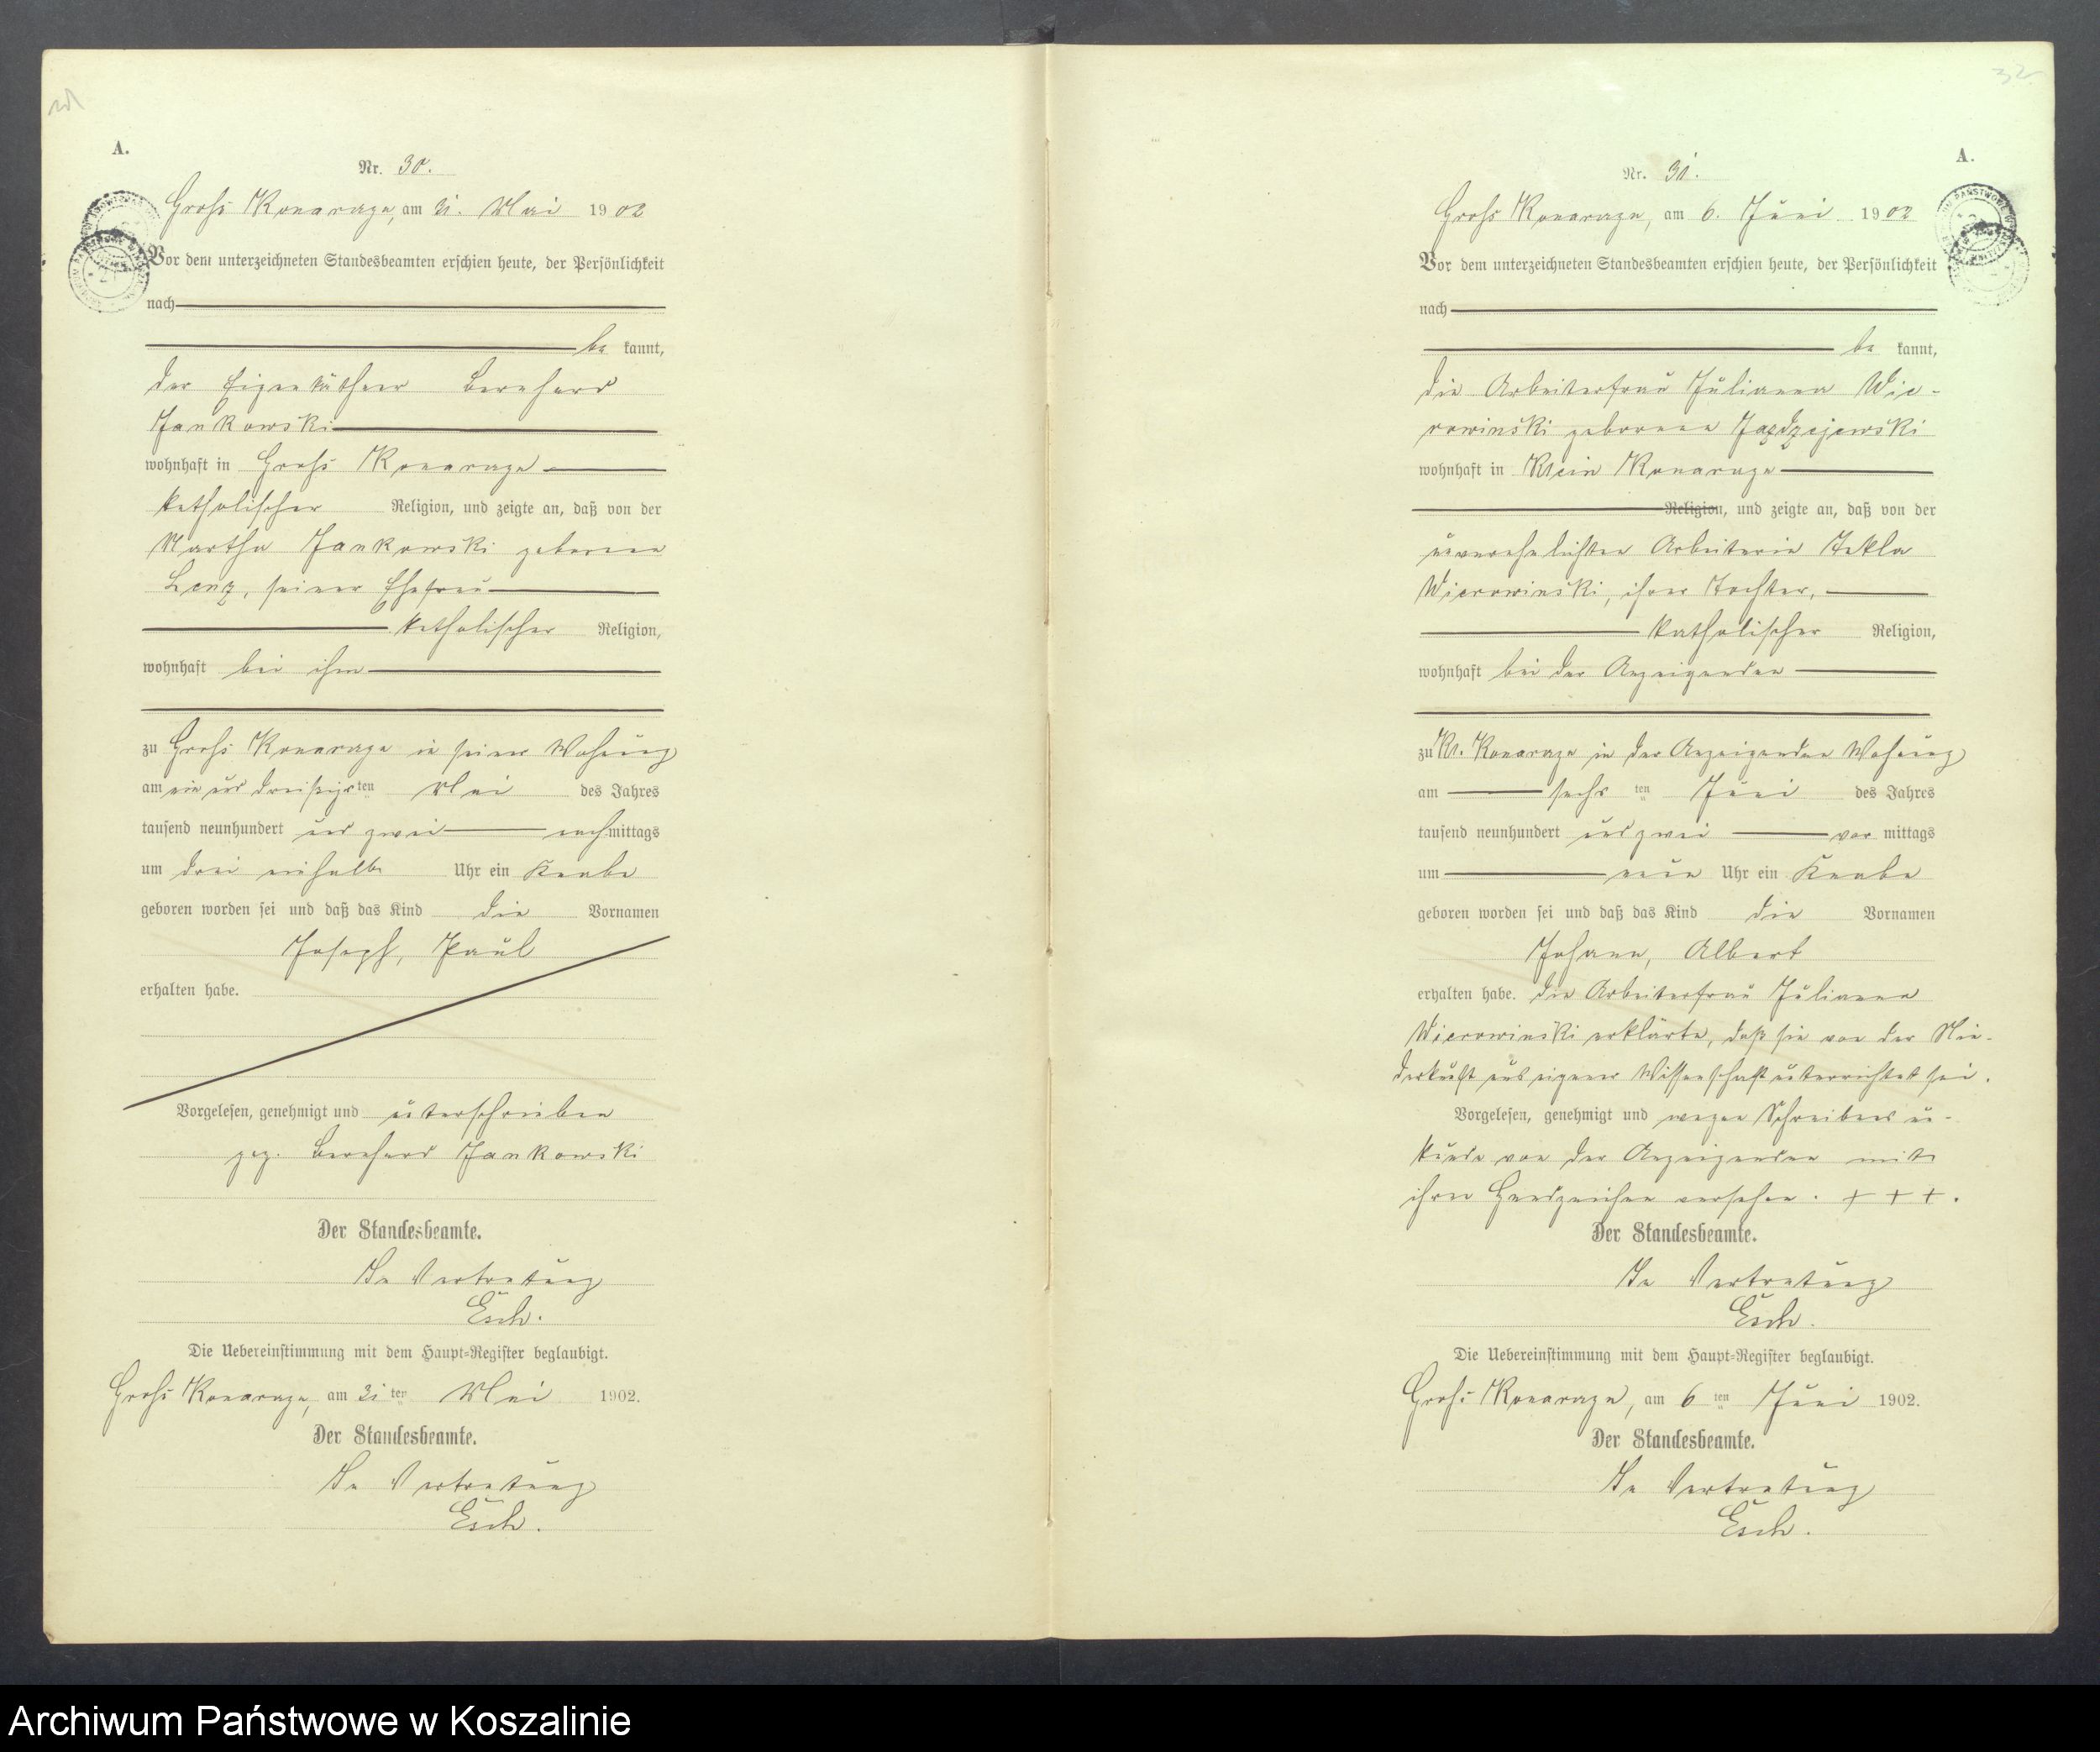 A.
Nr. 30.
Groß Konarzyn, am 31. Mai 1902
Vor dem unterzeichneten Standesbeamten erschien heute, der Persönlichkeit
nach
be kannt,
der Eigenthümer Bernhard
Jankowski
wohnhaft in Groß Konarzyn
katholischer Religion, und zeigte an, daß von der
Martha Jankowski geborene
Lenz, seiner Ehefrau
katholischer Religion,
wohnhaft bei ihm
zu Groß Konarzyn in seiner Wohnung
am ein und dreißigsten Mai des Jahres
tausend neunhundert und zwei nachmittags
um drei einhalb Uhr ein Knabe
geboren worden sei und daß das Kind die Vornamen
Joseph, Paul
erhalten habe.
Vorgelesen, genehmigt und unterschrieben
gez. Bernhard Jankowski
Der Standesbeamte.
In Vertretung
Esch.
Die Uebereinstimmung mit dem Haupt-Register beglaubigt.
Groß Konarzyn, am 31ten Mai 1902.
Der Standesbeamte.
In Vertretung
Esch.
32
A.
Nr. 31.
Groß Konarzyn, am 6. Juni 1902
Vor dem unterzeichneten Standesbeamten erschien heute, der Persönlichkeit
nach
be kannt,
die Arbeiterfrau Julianna Wie-
rowinski geborene Jazdzejewski
wohnhaft in Klein Konarzyn
Religion, und zeigte an, daß von der
unverehelichten Arbeiterin Tekla
Wierowinski, ihrer Tochter,
katholischer Religion,
wohnhaft bei der Anzeigenden
zu Kl. Konarzyn in der Anzeigenden Wohnung
am sechs ten Juni des Jahres
tausend neunhundert und zwei vor mittags
um neun Uhr ein Knabe
geboren worden sei und daß das Kind die Vornamen
Johann, Albert
erhalten habe. die Arbeiterfrau Julianna
Wierowinski erklärte, daß sie von der Nie-
derkunft aus eigener Wissenschaft unterrichtet sei.
Vorgelesen, genehmigt und wegen Schreibens un-
kunde von der Anzeigenden mit
ihren Handzeichen versehen. + + +.
Der Standesbeamte.
In Vertretung
Esch.
Die Uebereinstimmung mit dem Haupt-Register beglaubigt.
Groß Konarzyn, am 6ten Juni 1902.
Der Standesbeamte.
In Vertretung
Esch.
Archiwum Państwowe w Koszalinie